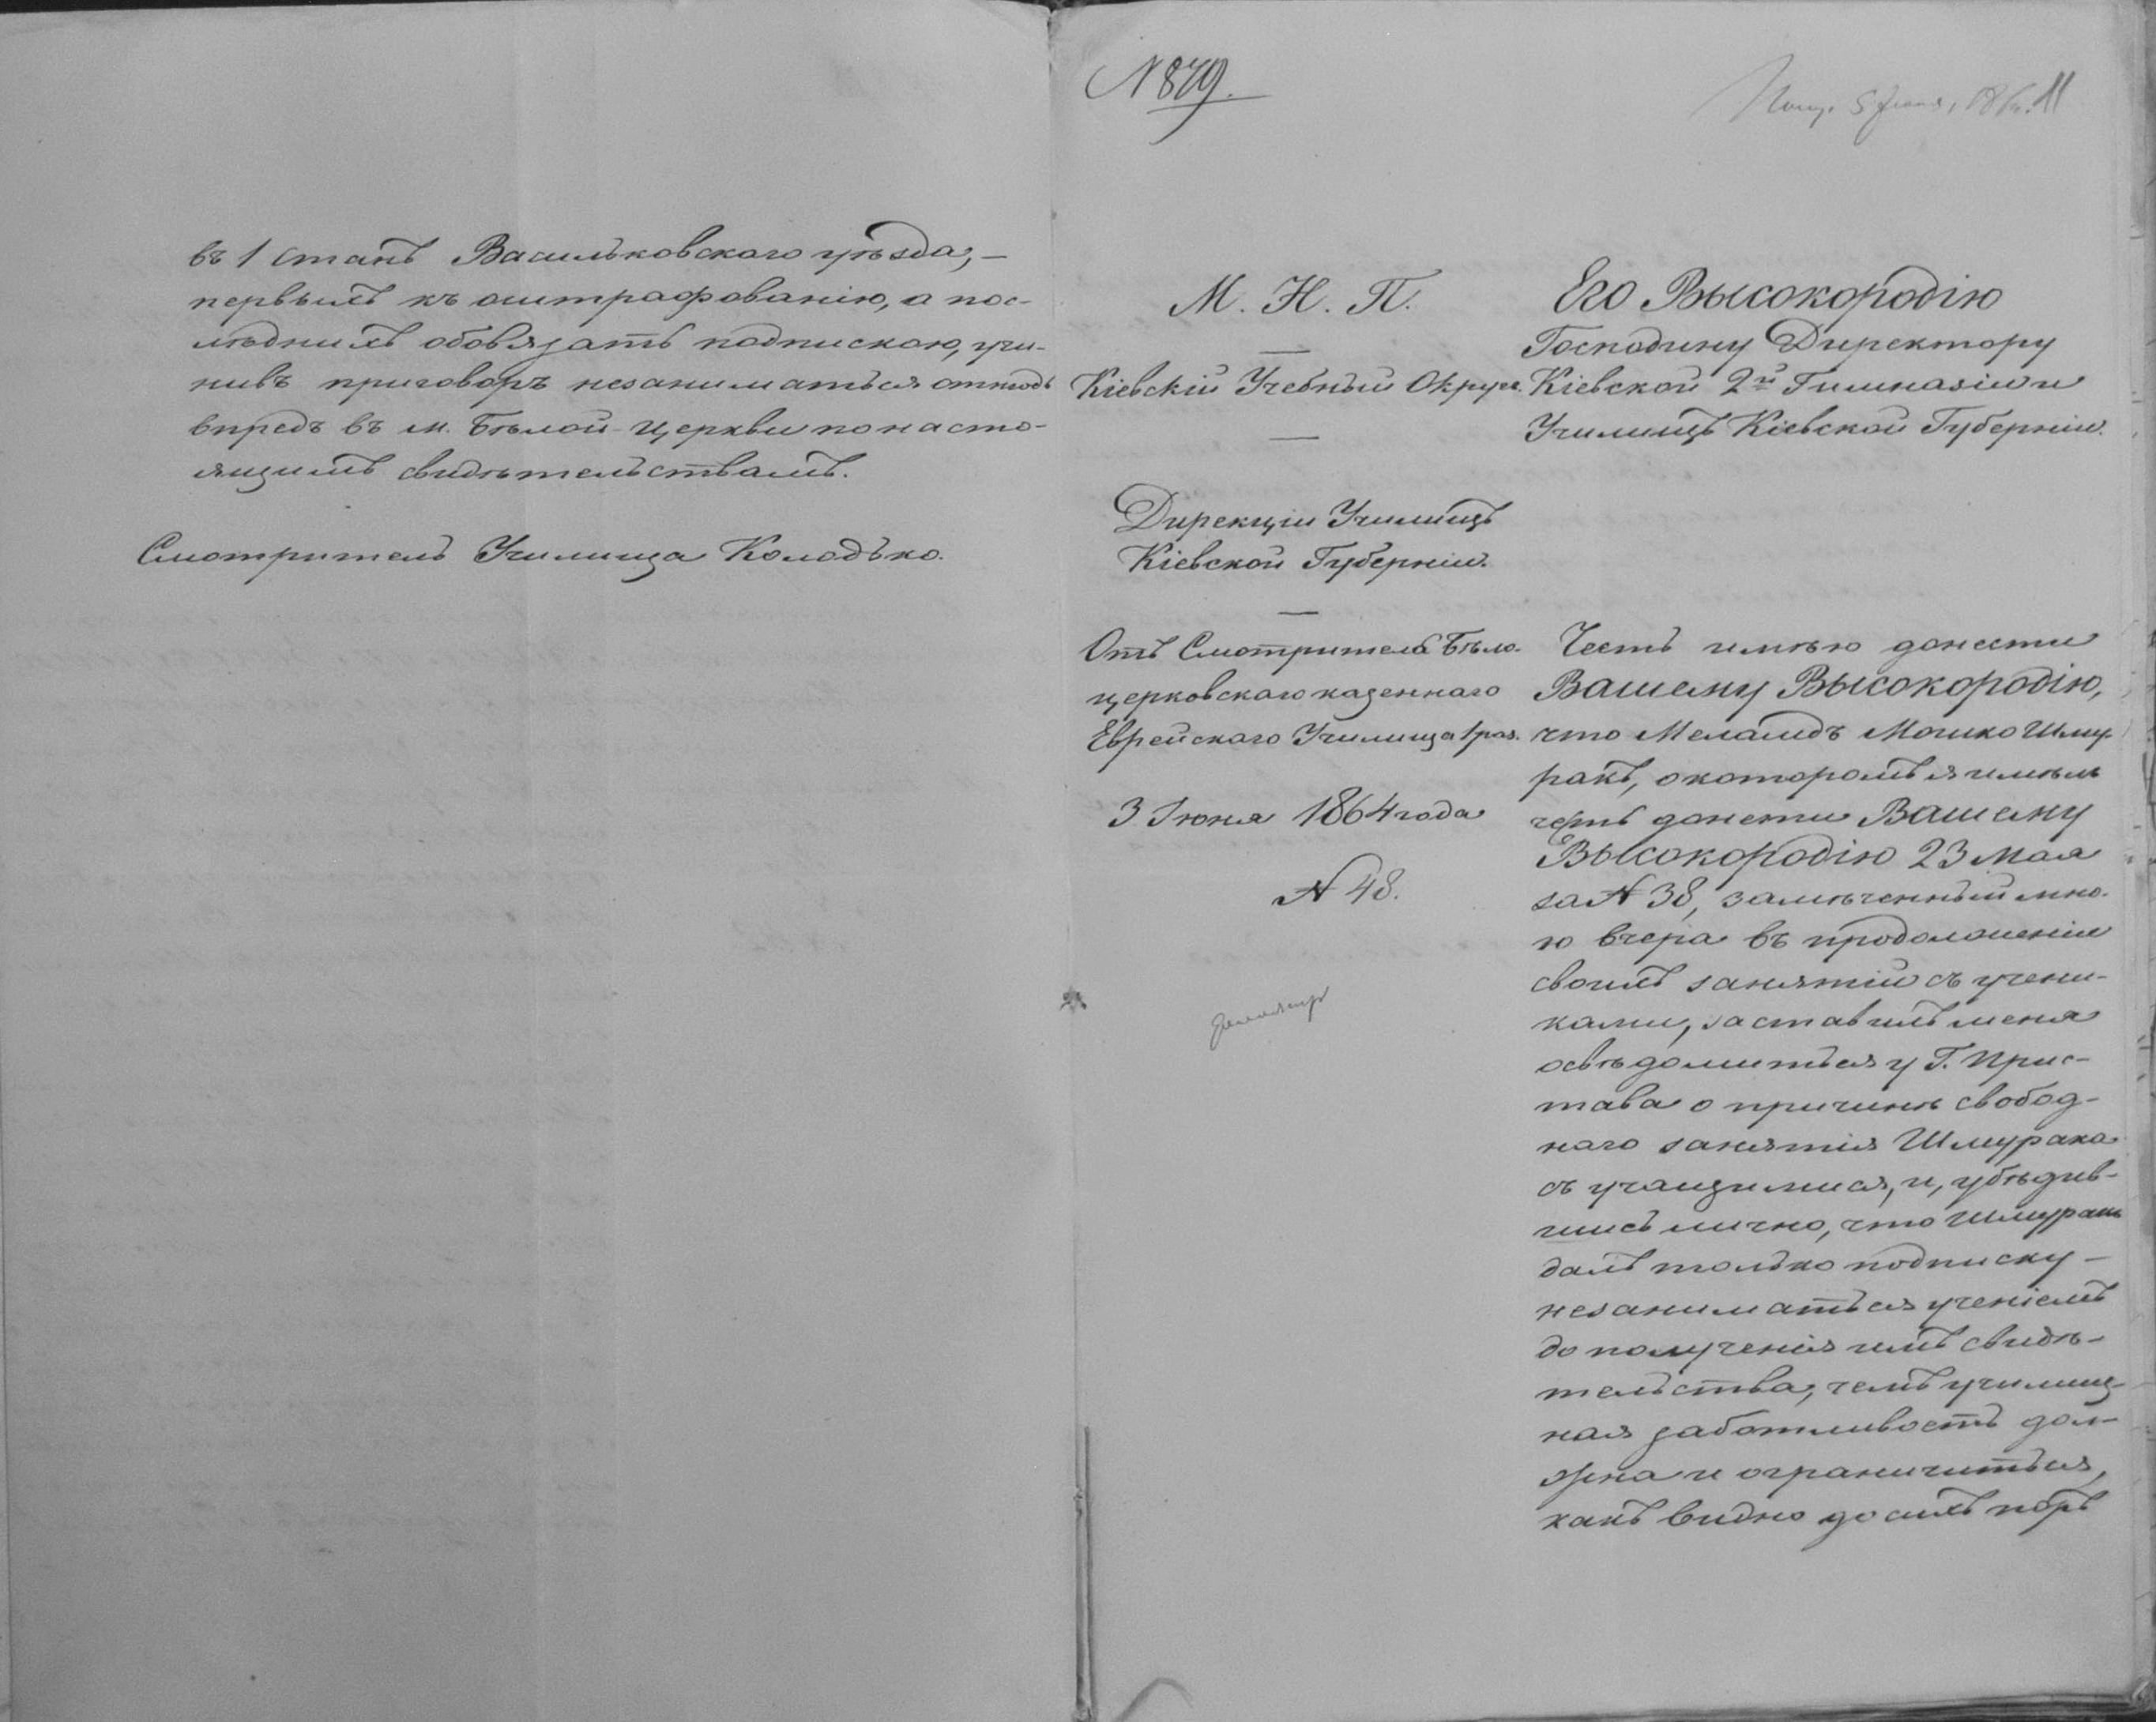 въ 1 станъ Васильковскаго уѣзда, —
первыхъ къ оштрафованію, а пос-
лѣднихъ обовязать подпискою, учи-
нивъ приговоръ незаниматься отнюдь
впредь въ м. Бѣлой-Церкви по насто-
ящимъ свидѣтельствамъ.
Смотритель Училища Колодько.
N 879.
Получ. 5 Іюня, 1864 г. 11
М. Н. П.
Кіевскій Учебный Округъ.
Дирекціи Училищъ
Кіевской Губерніи.
Отъ Смотрителя Бѣло-
церковскаго казеннаго
Еврейскаго Училища 1 раз.
3 Іюня 1864 года
N 48.
Его Высокородію
Господину Директору
Кіевской 2й Гимназіи и
Училищъ Кіевской Губерніи.
Честь имѣю донести
Вашему Высокородію,
что Меламдъ Мошко Шму-
ракъ, о которомъ я имѣлъ
честь донести Вашему
Высокородію 23 Мая
за N 38, замѣченный мно-
ю вчера въ продолженіи
своихъ занятій съ учени-
ками, заставилъ меня
освѣдомиться у Г. Прис-
тава о причинѣ свобод-
наго занятія Шмурака
съ учащимися, и, убѣдив-
шись лично, что Шмуракъ
далъ только подписку —
незаниматься ученіемъ
до полученія имъ свидѣ-
тельства, чемъ училищ-
ная заботливость дол-
жна и ограничиться,
какъ видно до сихъ поръ